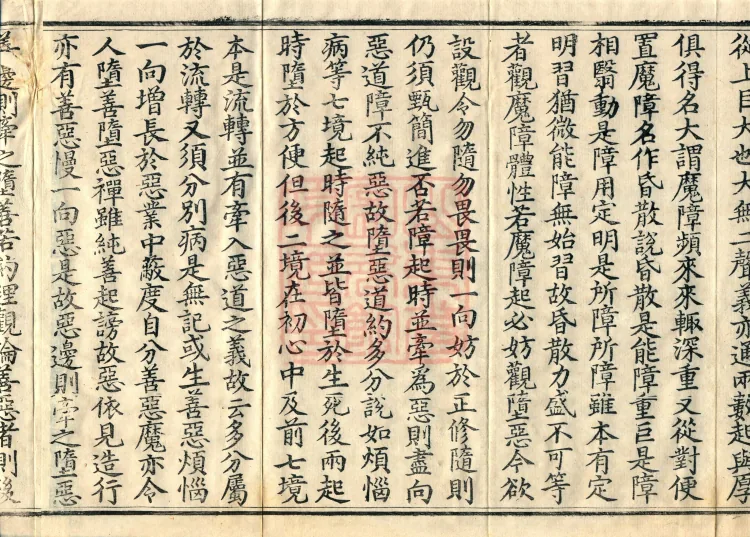 從上巨大也大無二聲義亦通兩數起與厚
俱得名大謂魔障頻來來輙深重又從對便
置魔障名作昏散說昏散是能障重巨是障
相翳動是障用定明是所障所障雖本有定
明習猶微能障無始習故昏散力盛不可等
者觀魔障體性若魔障起必妨觀墮惡今欲
設觀令勿隨勿畏畏則一向妨於正修隨則
仍須甄簡進否若障起時並牽爲惡則盡向
惡道障不純惡故墮惡道約多分說如煩惱
病等七境起時隨之並皆墮於生死後兩起
時墮於方便但後二境在初心中及前七境
本是流轉並有牽入惡道之義故云多分屬
於流轉又須分別病是無記或生善惡煩惱
一向增長於惡業中蔽度自分善惡魔亦令
人墮善墮惡禪雖純善起謗故惡依見造行
亦有善惡慢一向惡是故惡邊則牽之墮惡
善邊則牽之墮善若約理觀論善惡者則後